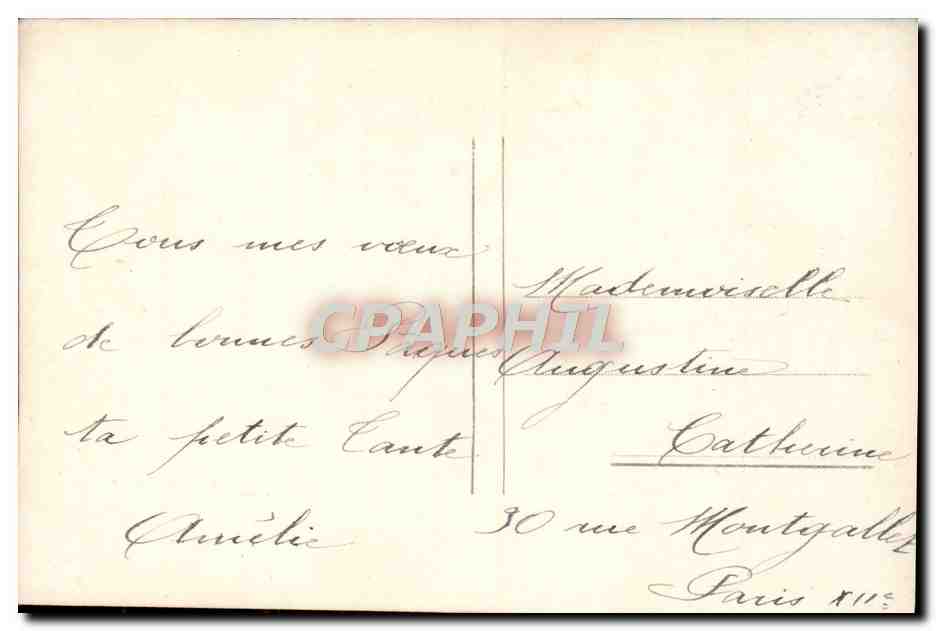 Tous mes vœux
de bonnes Pâques
ta petite Tante
Amélie
Mademoiselle
Augustine
Catherine
30 rue Montgallet
Paris XIIe
CPAPHIL